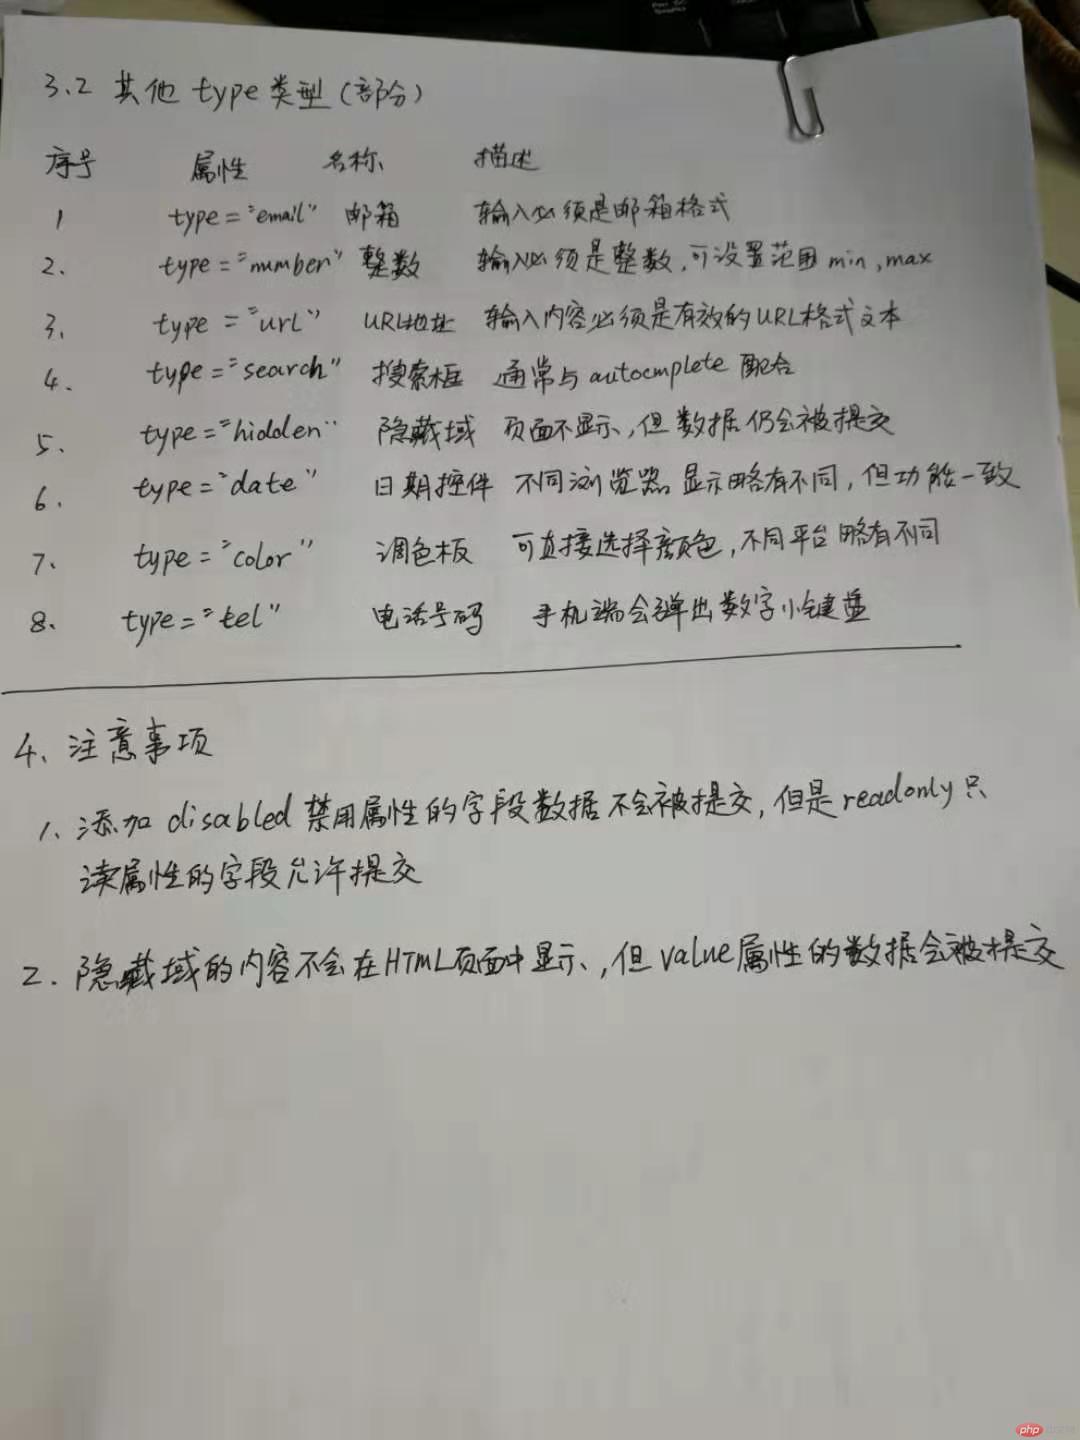 3.2 其他 type 类型（部分）
序号 属性 名称 描述
1 type="email" 邮箱 输入必须是邮箱格式
2. type="number" 整数 输入必须是整数,可设置范围 min,max
3. type="url" URL地址 输入内容必须是有效的URL格式文本
4. type="search" 搜索框 通常与autocmplete 配合
5. type="hidden" 隐藏域 页面不显示,但数据仍会被提交
6. type="date" 日期控件 不同浏览器显示略有不同,但功能一致
7. type="color" 调色板 可直接选择颜色,不同平台略有不同
8. type="tel" 电话号码 手机端会弹出数字小键盘
4、注意事项
1、添加 disabled 禁用属性的字段数据不会被提交,但是readonly只
读属性的字段允许提交
2. 隐藏域的内容不会在HTML页面中显示,但value属性的数据会被提交
php